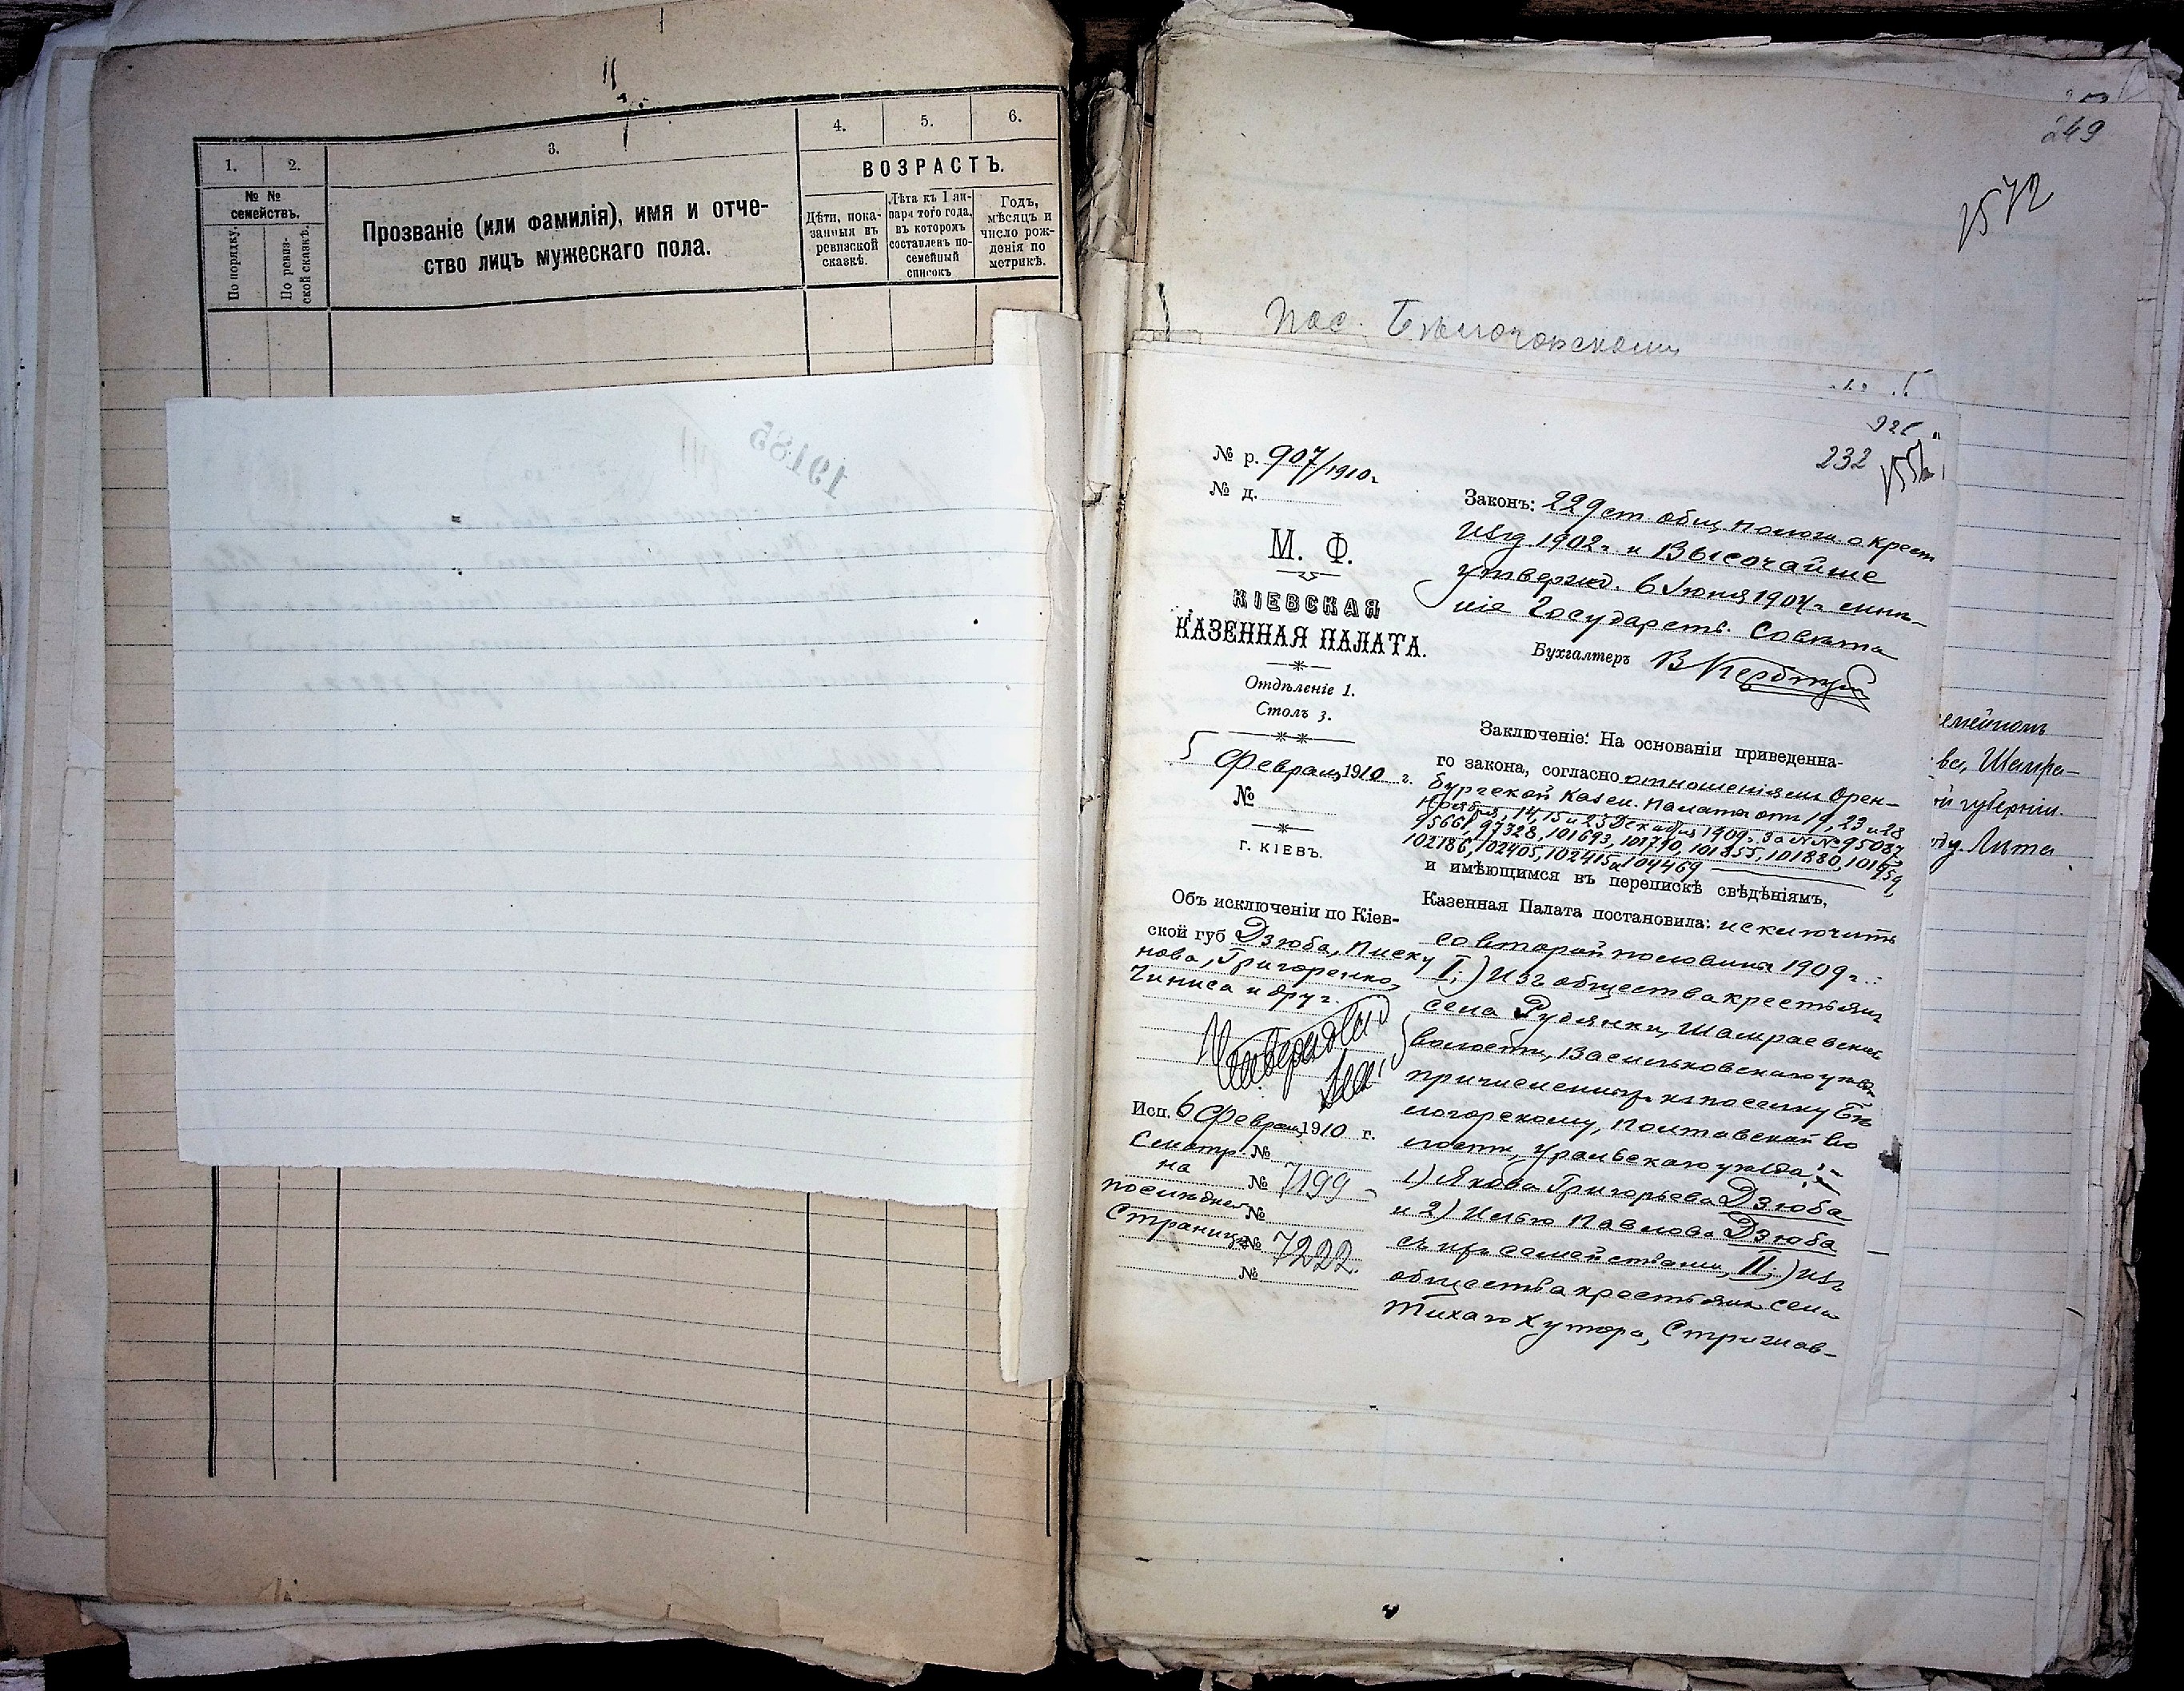 1.
2.
3.
4.
5.
6.
№ №
семействъ.
По порядку.
По ревиз-
ской сказкѣ.
Прозваніе (или фамилія), имя и отче-
ство лицъ мужескаго пола.
ВОЗРАСТЪ.
Дѣти, пока-
занныя въ
ревизской
сказкѣ.
Лѣта къ 1 ян-
варя того года,
въ которомъ
составленъ по-
семейный
списокъ
Годъ,
мѣсяцъ и
число рож-
денія по
метрикѣ.
19185
249
1572
Пос. Бѣлогорскому
232
№ р. 907/1910 г.
№ д.
М. Ф.
КІЕВСКАЯ
КАЗЕННАЯ ПАЛАТА.
Отдѣленіе 1.
Столъ 3.
5 Февраля 1910 г.
№
Г. КІЕВЪ.
Объ исключеніи по Кіев-
ской губ Дзюба, Писку
нова, Григоренко,
Чиниса и друг.
Исп. 6 Февраля 1910 г.
Смотр. №
на № 7199
послѣдней №
Страницѣ № 7222.
№
Законъ: 229 ст общ полож. о крест
изд 1902 г. и Высочайше
утвержд. 6 Іюня 1904 г. мнѣ-
ніе Государств. Совѣта
Бухгалтеръ
Заключеніе: На основаніи приведенна-
го закона, согласно отношеніямъ Орен-
бургской Казен. Палаты отъ 19, 23 и 28
Ноября, 14, 15 и 23 Декабря 1909 г. за №№ 95087,
95661, 97328, 101693, 101770, 101855, 101880, 101959,
102186, 102405, 102415 и 104469
и имѣющимся въ перепискѣ свѣдѣніямъ,
Казенная Палата постановила: исключить
со второй половины 1909 г.:
I;) Изъ общества крестьянъ
села Рудянки, Шамраевской
волости, Васильковскаго уѣзда
причисленныхъ къ поселку Бѣ
логорскому, Полтавской во
лости, Уральскаго уѣзда:
1) Якова Григорьева Дзюба
и 2) Илью Павлова Дзюба
съ ихъ семействами, II;) изъ
общества крестьянъ села
Тихаго Хутора, Стрижав-
емейномъ
ва, Шамра-
ой губерніи.
Лита